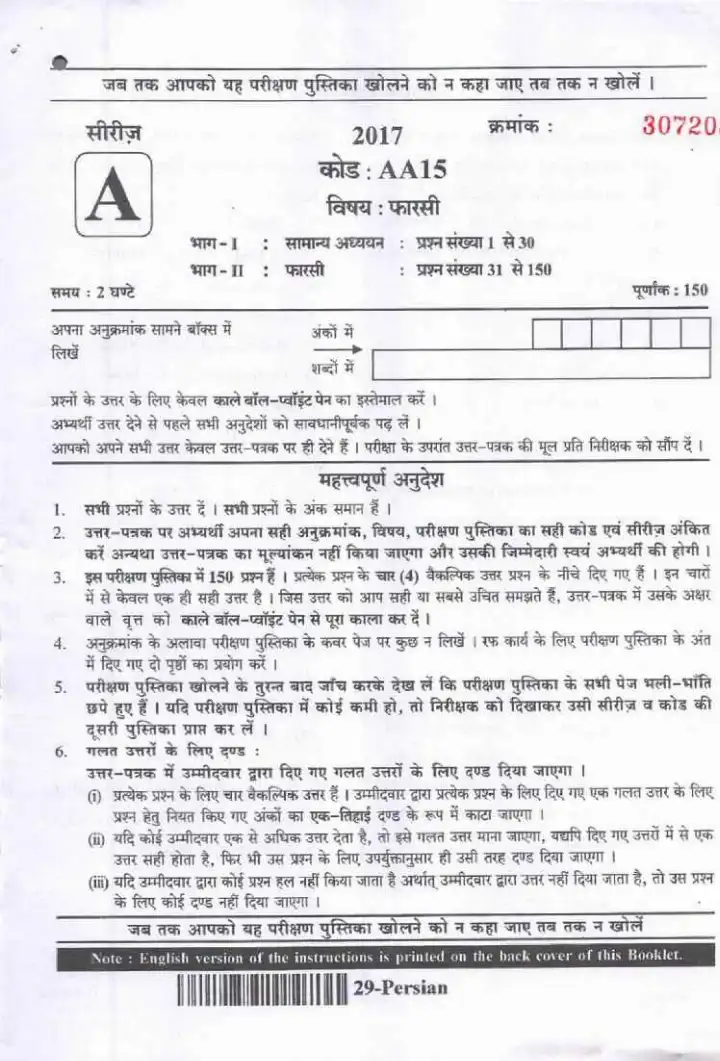 जब तक आपको यह परीक्षण पुस्तिका खोलने को न कहा जाए तब तक न खोलें ।
सीरीज़
2017
क्रमांक :
30720
A
कोड : AA15
विषय : फारसी
भाग - I : सामान्य अध्ययन : प्रश्न संख्या 1 से 30
भाग - II : फारसी : प्रश्न संख्या 31 से 150
समय : 2 घण्टे
पूर्णांक : 150
अपना अनुक्रमांक सामने बॉक्स में
लिखें
अंकों में
शब्दों में
प्रश्नों के उत्तर के लिए केवल काले बॉल-प्वॉइंट पेन का इस्तेमाल करें ।
अभ्यर्थी उत्तर देने से पहले सभी अनुदेशों को सावधानीपूर्वक पढ़ लें ।
आपको अपने सभी उत्तर केवल उत्तर-पत्रक पर ही देने हैं । परीक्षा के उपरांत उत्तर-पत्रक की मूल प्रति निरीक्षक को सौंप दें ।
महत्त्वपूर्ण अनुदेश
1. सभी प्रश्नों के उत्तर दें । सभी प्रश्नों के अंक समान हैं ।
2. उत्तर-पत्रक पर अभ्यर्थी अपना सही अनुक्रमांक, विषय, परीक्षण पुस्तिका का सही कोड एवं सीरीज़ अंकित
करें अन्यथा उत्तर-पत्रक का मूल्यांकन नहीं किया जाएगा और उसकी जिम्मेदारी स्वयं अभ्यर्थी की होगी ।
3. इस परीक्षण पुस्तिका में 150 प्रश्न हैं । प्रत्येक प्रश्न के चार (4) वैकल्पिक उत्तर प्रश्न के नीचे दिए गए हैं । इन चारों
में से केवल एक ही सही उत्तर है । जिस उत्तर को आप सही या सबसे उचित समझते हैं, उत्तर-पत्रक में उसके अक्षर
वाले वृत्त को काले बॉल-प्वॉइंट पेन से पूरा काला कर दें ।
4. अनुक्रमांक के अलावा परीक्षण पुस्तिका के कवर पेज पर कुछ न लिखें । रफ कार्य के लिए परीक्षण पुस्तिका के अंत
में दिए गए दो पृष्ठों का प्रयोग करें ।
5. परीक्षण पुस्तिका खोलने के तुरन्त बाद जाँच करके देख लें कि परीक्षण पुस्तिका के सभी पेज भली-भाँति
छपे हुए हैं । यदि परीक्षण पुस्तिका में कोई कमी हो, तो निरीक्षक को दिखाकर उसी सीरीज़ व कोड की
दूसरी पुस्तिका प्राप्त कर लें ।
6. गलत उत्तरों के लिए दण्ड :
उत्तर-पत्रक में उम्मीदवार द्वारा दिए गए गलत उत्तरों के लिए दण्ड दिया जाएगा ।
(i) प्रत्येक प्रश्न के लिए चार वैकल्पिक उत्तर हैं । उम्मीदवार द्वारा प्रत्येक प्रश्न के लिए दिए गए एक गलत उत्तर के लिए
प्रश्न हेतु नियत किए गए अंकों का एक-तिहाई दण्ड के रूप में काटा जाएगा ।
(ii) यदि कोई उम्मीदवार एक से अधिक उत्तर देता है, तो इसे गलत उत्तर माना जाएगा, यद्यपि दिए गए उत्तरों में से एक
उत्तर सही होता है, फिर भी उस प्रश्न के लिए उपर्युक्तानुसार ही उसी तरह दण्ड दिया जाएगा ।
(iii) यदि उम्मीदवार द्वारा कोई प्रश्न हल नहीं किया जाता है अर्थात् उम्मीदवार द्वारा उत्तर नहीं दिया जाता है, तो उस प्रश्न
के लिए कोई दण्ड नहीं दिया जाएगा ।
जब तक आपको यह परीक्षण पुस्तिका खोलने को न कहा जाए तब तक न खोलें
Note : English version of the instructions is printed on the back cover of this Booklet.
29-Persian